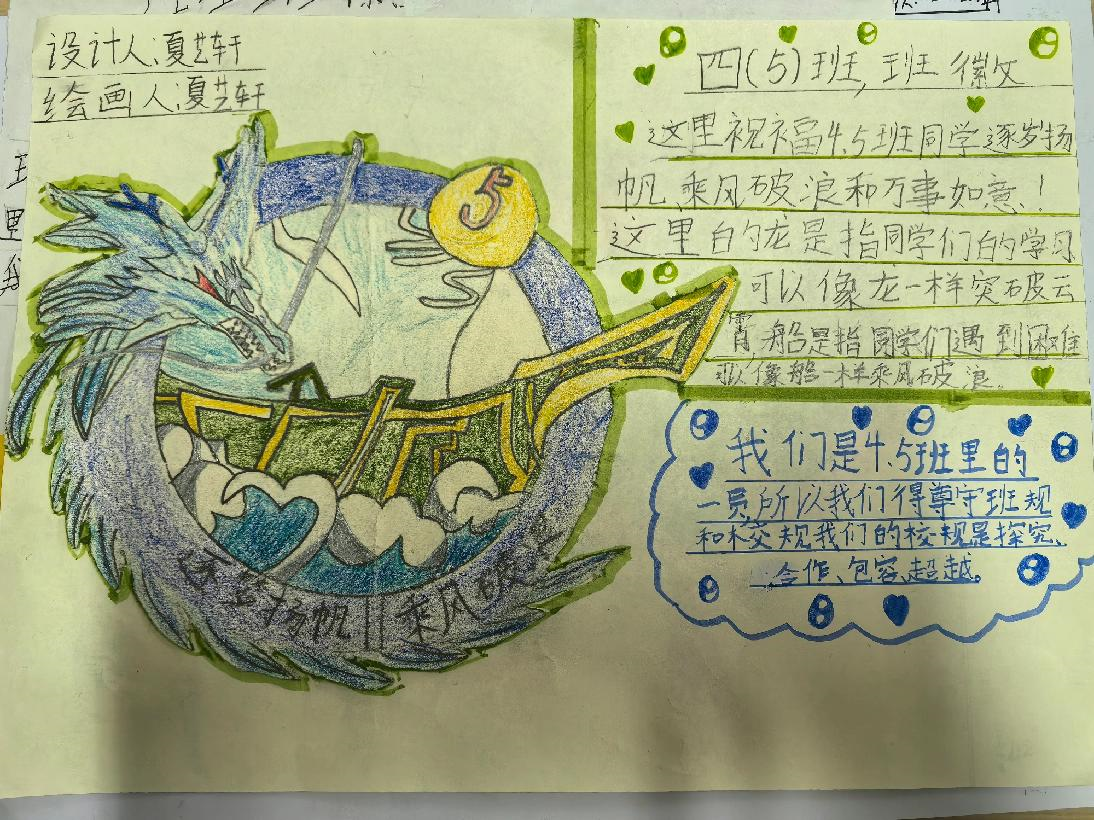 设计人:夏艺轩
绘画人:夏艺轩
四(5)班,班徽文
这里祝福4.5班同学逐岁扬
帆,乘风破浪和万事如意!
这里的龙是指同学们的学习
可以像龙一样突破云
霄船是指同学们遇到困难
可以像船一样乘风破浪。
5
扬帆||乘风破
我们是4.5班里的
一员,所以我们得尊守班规
和校规我们的校规是探究、
合作、包容、超越。